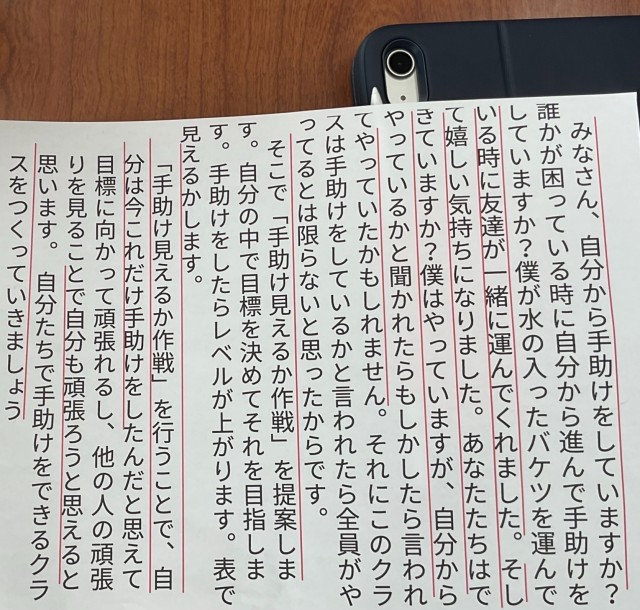 みなさん、自分から手助けをしていますか?
誰かが困っている時に自分から進んで手助けを
していますか?僕が水の入ったバケツを運んで
いる時に友達が一緒に運んでくれました。そし
て嬉しい気持ちになりました。あなたたちはで
きていますか?僕はやっていますが、自分から
やっているかと聞かれたらもしかしたら言われ
てやっていたかもしれません。それにこのクラ
スは手助けをしているかと言われたら全員がや
ってるとは限らないと思ったからです。
そこで「手助け見えるか作戦」を提案しま
す。自分の中で目標を決めてそれを目指しま
す。手助けをしたらレベルが上がります。表で
見えるかします。
「手助け見えるか作戦」を行うことで、自
分は今これだけ手助けをしたんだと思えて
目標に向かって頑張れるし、他の人の頑張
りを見ることで自分も頑張ろうと思えると
思います。自分たちで手助けをできるクラ
スをつくっていきましょう